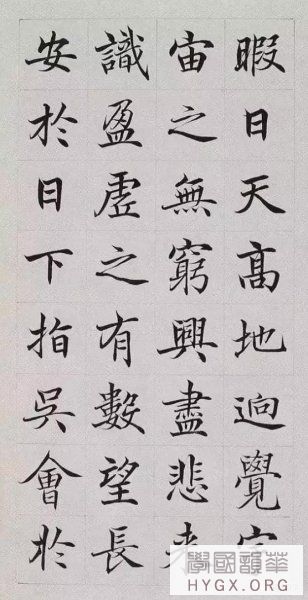 暇日天髙地逈覺宇
宙之無窮興盡悲來
識盈虛之有數望長
安於日下指吳會於
華韻國學
HYGX.ORG